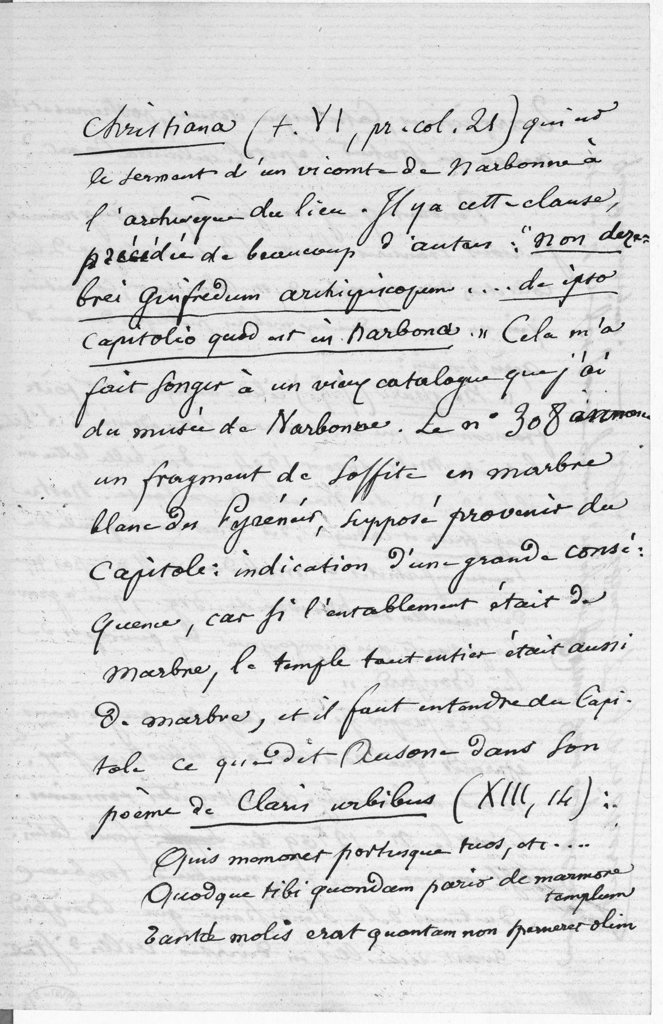 Christiana (t. VI, pr. col. 21) qui est
le serment d'un vicomte de Narbonne à
l'archevêque du lieu. Il y a cette clause,
précédée de beaucoup d'autres : "non deze-
brei Guifredum archiepiscopum .... de ipso
Capitolio quod est in Narbona." Cela m'a
fait songer à un vieux catalogue que j'ai
du musée de Narbonne. Le n° 308 annonce
un fragment de soffite en marbre
blanc des Pyrénées, supposé provenir du
Capitole: indication d'une grande consé-
quence, car si l'entablement était de
marbre, le temple tout entier était aussi
de marbre, et il faut entendre du Capi-
tole ce que dit Ausone dans son
poème de Claris urbibus (XIII, 14) :
Quis memoret portusque tuos, etc....
Quodque tibi quondam pario de marmore
templum
Tantæ molis erat quantam non sperneret olim